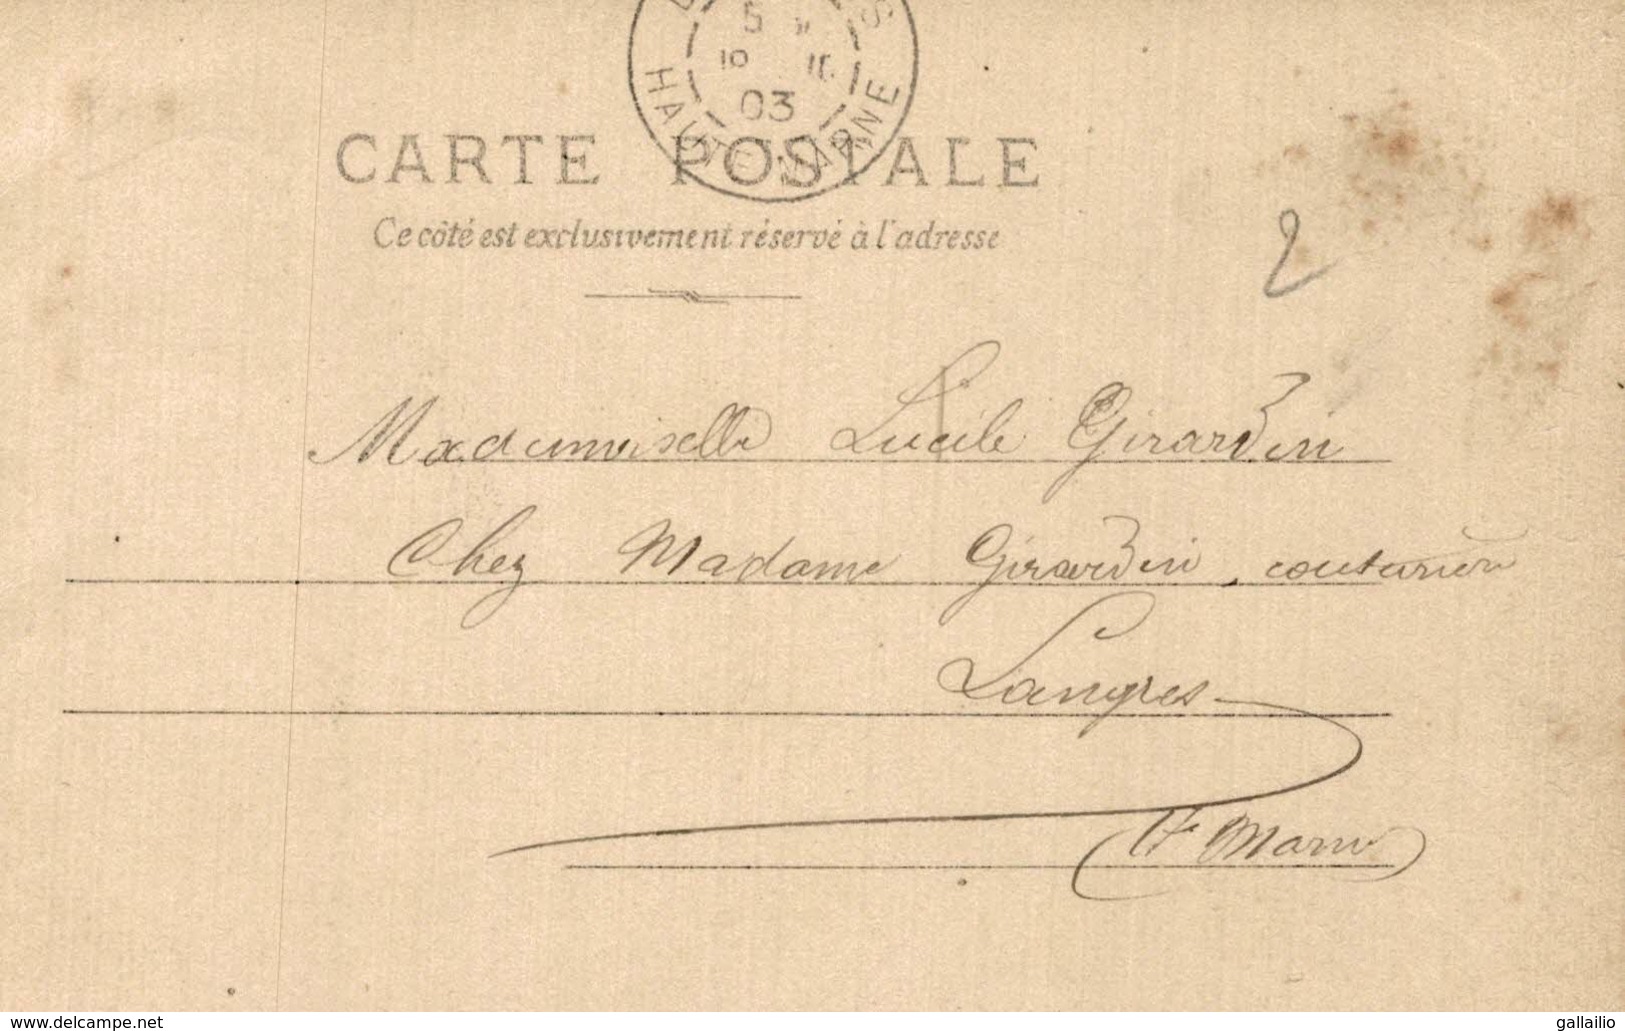 5
10
03
HAUTE MARNE
CARTE POSTALE
Ce côté est exclusivement réservé à l'adresse
2
Mademoiselle Lucile Girardin
Chez Madame Girardin, couturière
Langres
(Hte Marne)
www.delcampe.net
gallailio